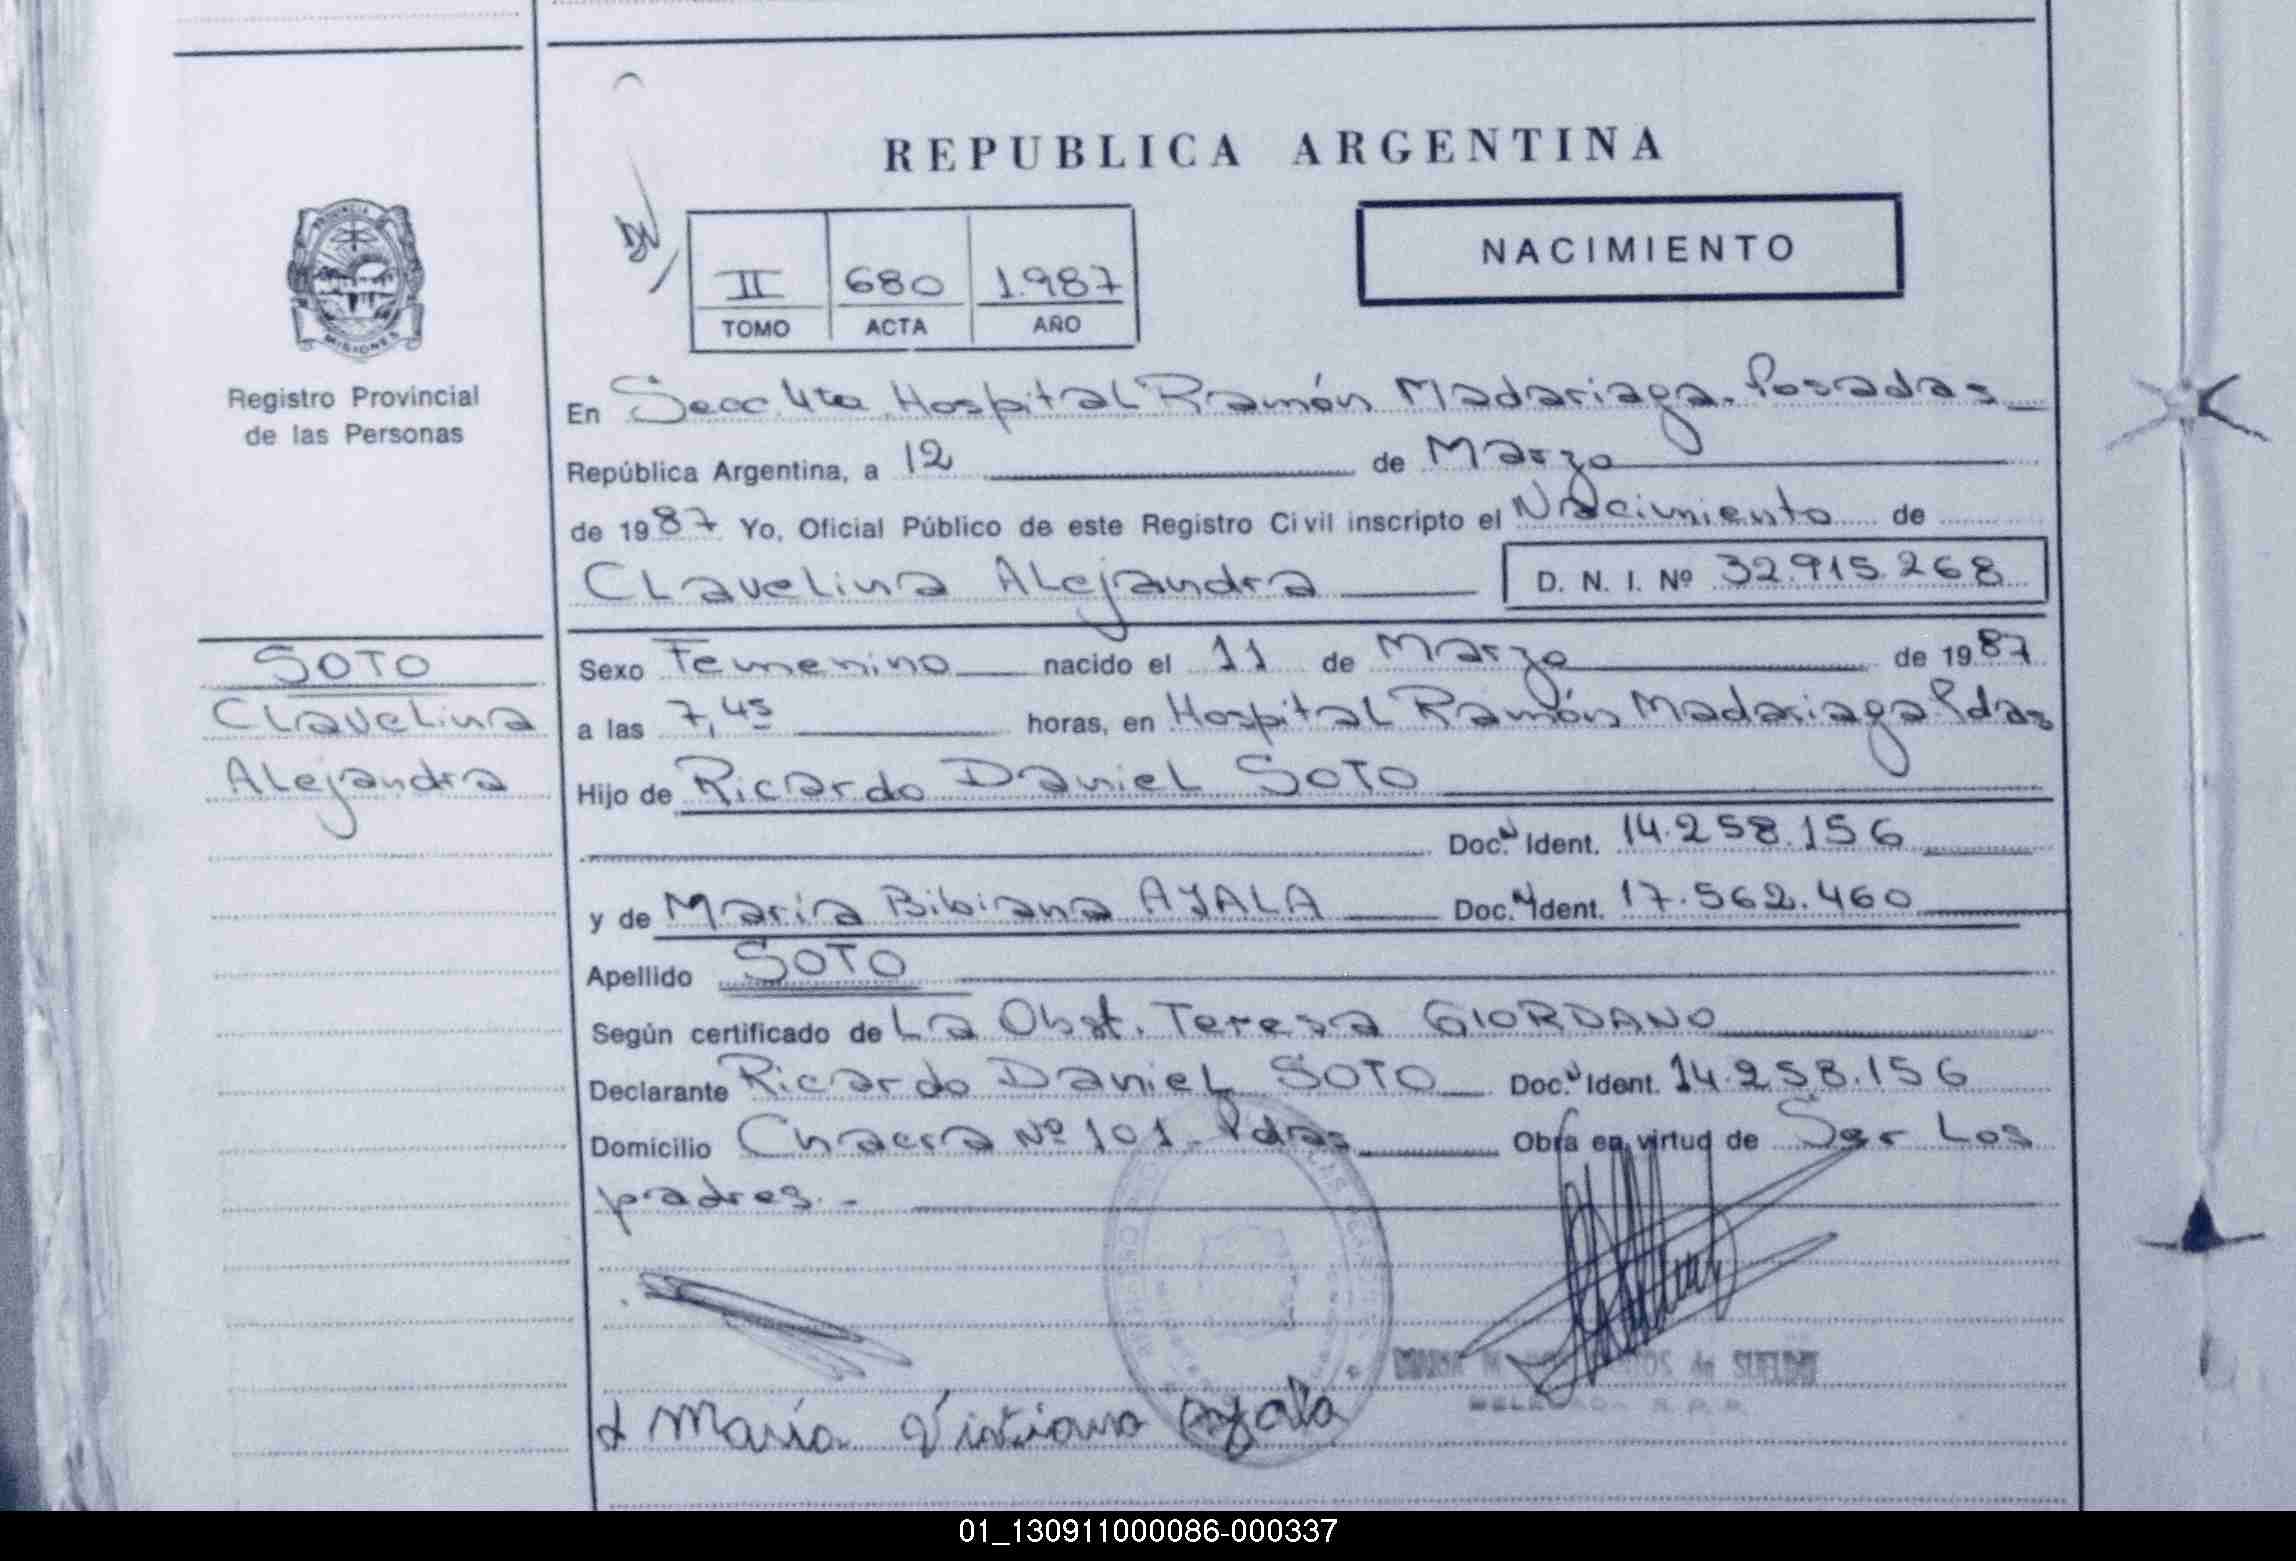 REPUBLICA ARGENTINA
NACIMIENTO
II 680 1.987
TOMO ACTA AÑO
PROVINCIA DE
MISIONES
Registro Provincial
de las Personas
En Secc. 4ta Hospital Ramón Madariaga. Posadas
República Argentina, a 12 de Marzo
de 1987 Yo, Oficial Público de este Registro Civil inscripto el Nacimiento de
Clavelina Alejandra D. N. I. Nº 32.915.268
SOTO
Clavelina
Alejandra
Sexo Femenino nacido el 11 de Marzo de 1987
a las 7,45 horas, en Hospital Ramón Madariaga Pdas
Hijo de Ricardo Daniel SOTO
Doc. Ident. 14.258.156
y de María Bibiana AYALA Doc. Ident. 17.562.460
Apellido SOTO
Según certificado de La Obst. Teresa GIORDANO
Declarante Ricardo Daniel SOTO Doc. Ident. 14.258.156
Domicilio Chacra Nº 101 - Pdas Obra en virtud de Ser Los
padres. -
de SUELDO
María Vitiana Ayala
01_130911000086-000337